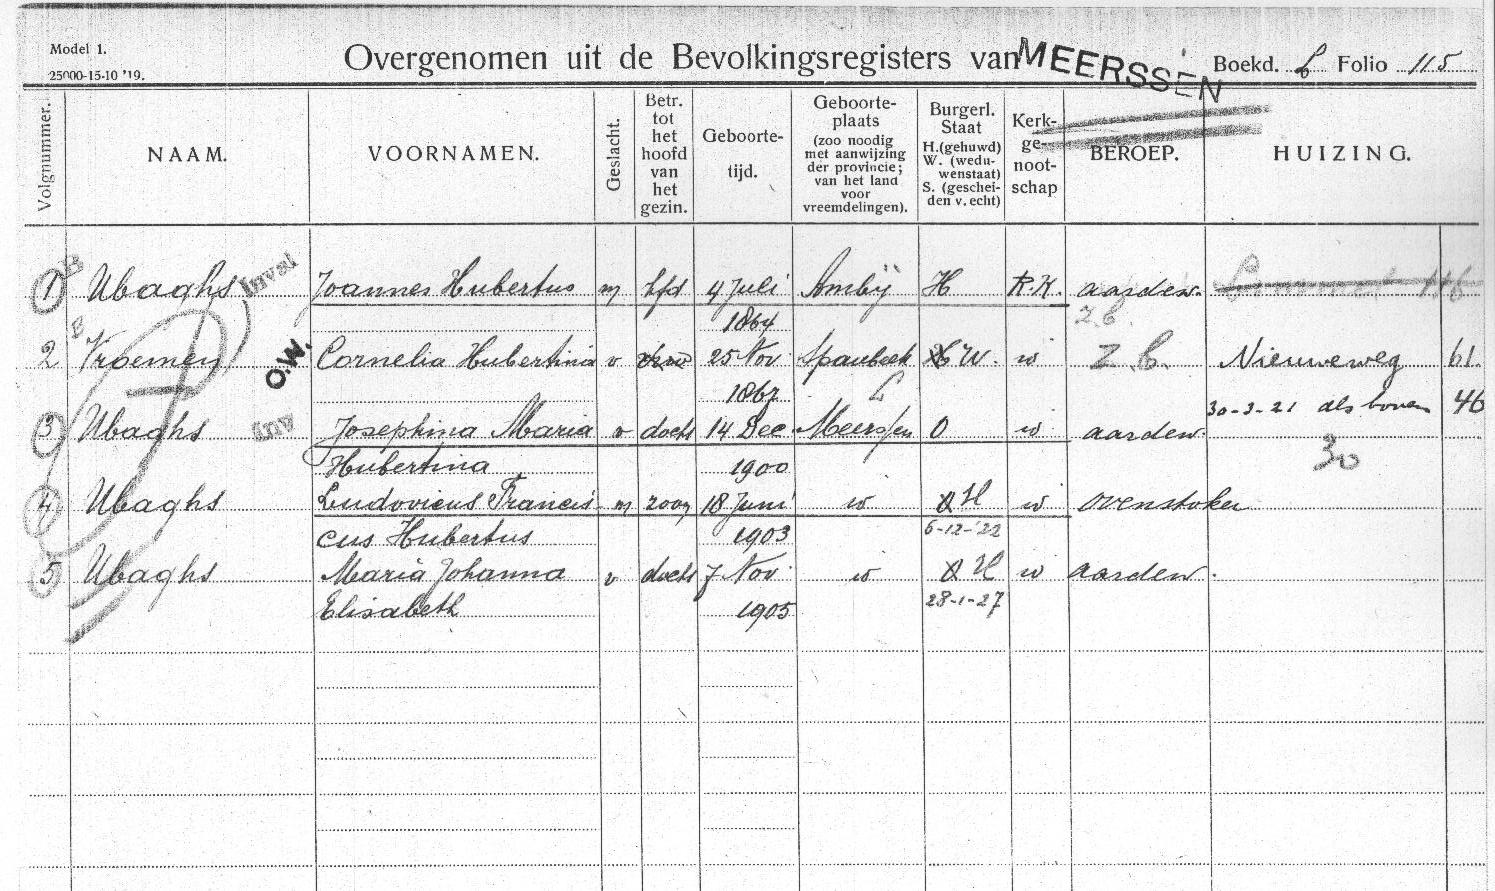 Model 1.
25000-15-10 '19.
Overgenomen uit de Bevolkingsregisters van MEERSSEN Boekd. b Folio 115
Volgnummer.
NAAM.
VOORNAMEN.
Geslacht.
Betr.
tot
het
hoofd
van
het
gezin.
Geboorte-
tijd.
Geboorte-
plaats
(zoo noodig
met aanwijzing
der provincie;
van het land
voor
vreemdelingen).
Burgerl.
Staat
H.(gehuwd)
W. (wedu-
wenstaat)
S. (geschei-
den v. echt)
Kerk-
ge-
noot-
schap
BEROEP.
HUIZING.
1 B Ubaghs Inval Joannes Hubertus m hfd 4 Juli Amby H R.K. aardew. 116
1864 Z.b.
2 E Vroemen O.W. Cornelia Hubertina v 25 Nov Spaubeek W. id Z.b. Nieuweweg 61.
1867 L 30-3-21 als boven 46
3 Ubaghs inv Josephina Maria v docht 14 Dec Meerssen O id aardew.
Hubertina 1900 30
4 Ubaghs Ludovicus Francis- m zoon 18 Juni id H id ovenstoker
cus Hubertus 1903 6-12-'22
5 Ubaghs Maria Johanna v docht 7 Nov id H id aardew.
Elisabeth 1905 28-1-27